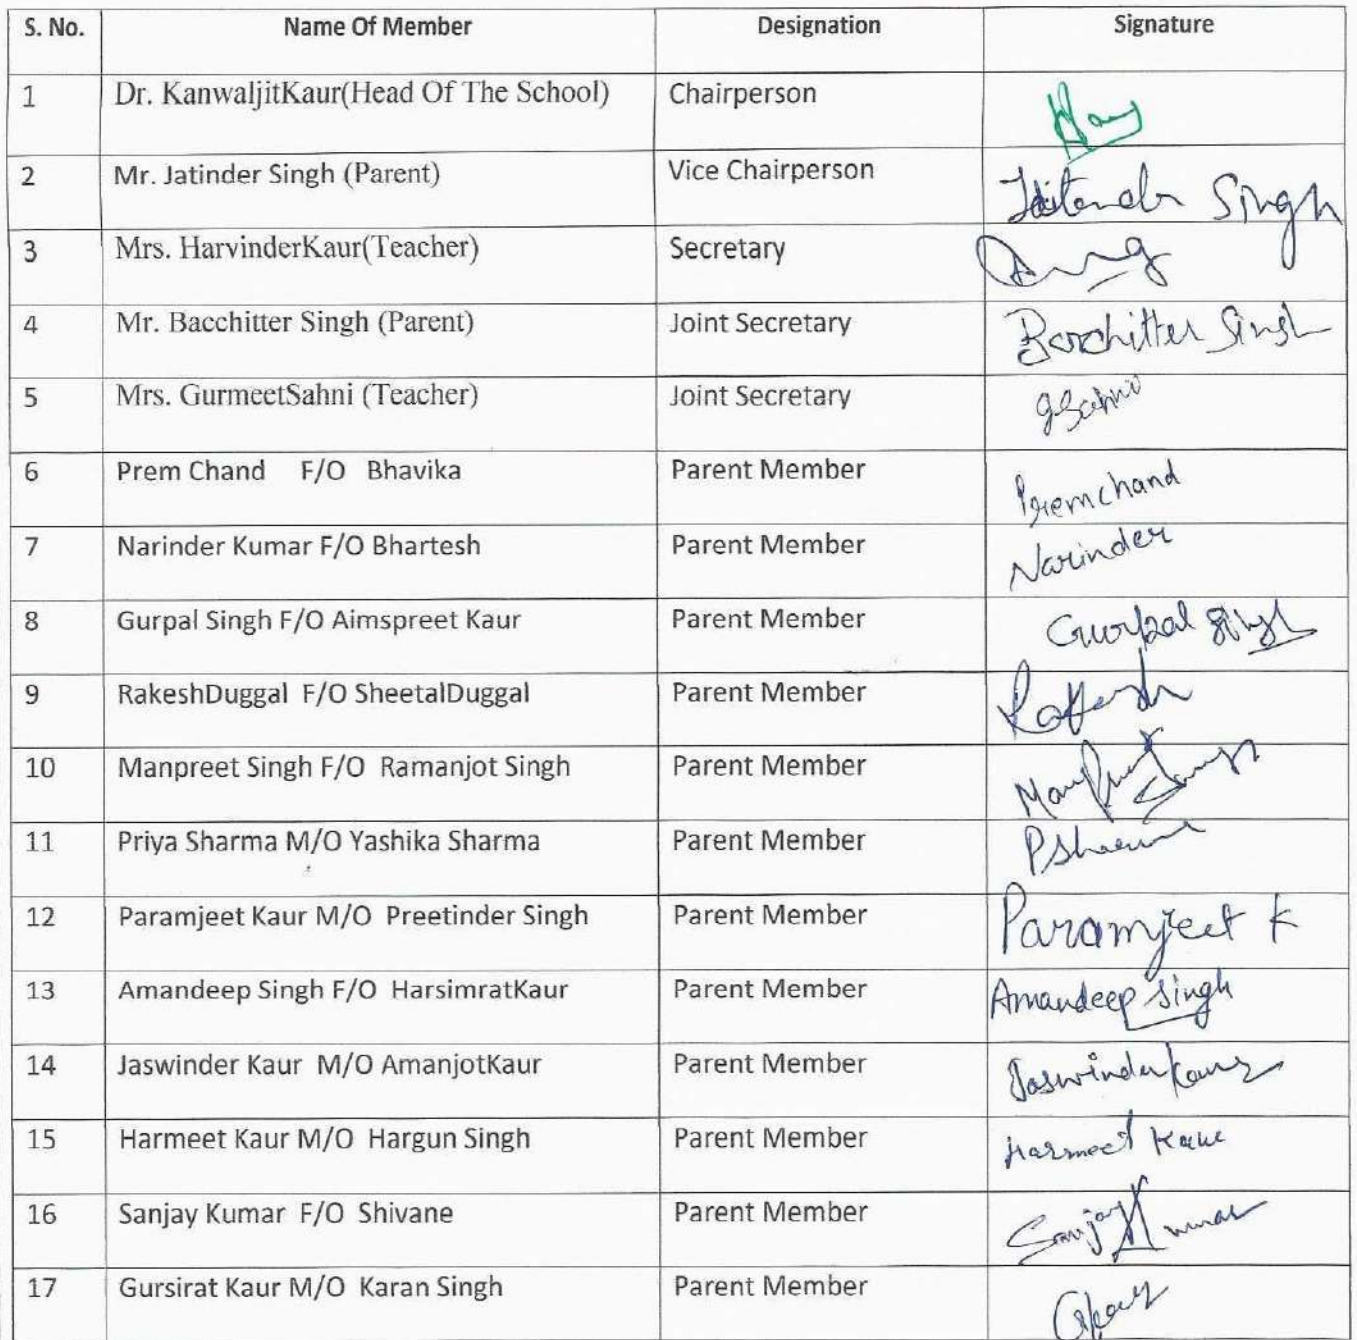 S. No. Name Of Member Designation Signature
1 Dr. KanwaljitKaur(Head Of The School) Chairperson
2 Mr. Jatinder Singh (Parent) Vice Chairperson Singh
3 Mrs. HarvinderKaur(Teacher) Secretary
4 Mr. Bacchitter Singh (Parent) Joint Secretary Bacchitter Singh
5 Mrs. GurmeetSahni (Teacher) Joint Secretary GSahni
6 Prem Chand F/O Bhavika Parent Member Premchand
7 Narinder Kumar F/O Bhartesh Parent Member Narinder
8 Gurpal Singh F/O Aimspreet Kaur Parent Member Gurpal Singh
9 RakeshDuggal F/O SheetalDuggal Parent Member Rakesh
10 Manpreet Singh F/O Ramanjot Singh Parent Member Manpreet Singh
11 Priya Sharma M/O Yashika Sharma Parent Member PSharma
12 Paramjeet Kaur M/O Preetinder Singh Parent Member Paramjeet K
13 Amandeep Singh F/O HarsimratKaur Parent Member Amandeep Singh
14 Jaswinder Kaur M/O AmanjotKaur Parent Member Jaswinder Kaur
15 Harmeet Kaur M/O Hargun Singh Parent Member Harmeet Kaur
16 Sanjay Kumar F/O Shivane Parent Member Sanjay Kumar
17 Gursirat Kaur M/O Karan Singh Parent Member GKaur